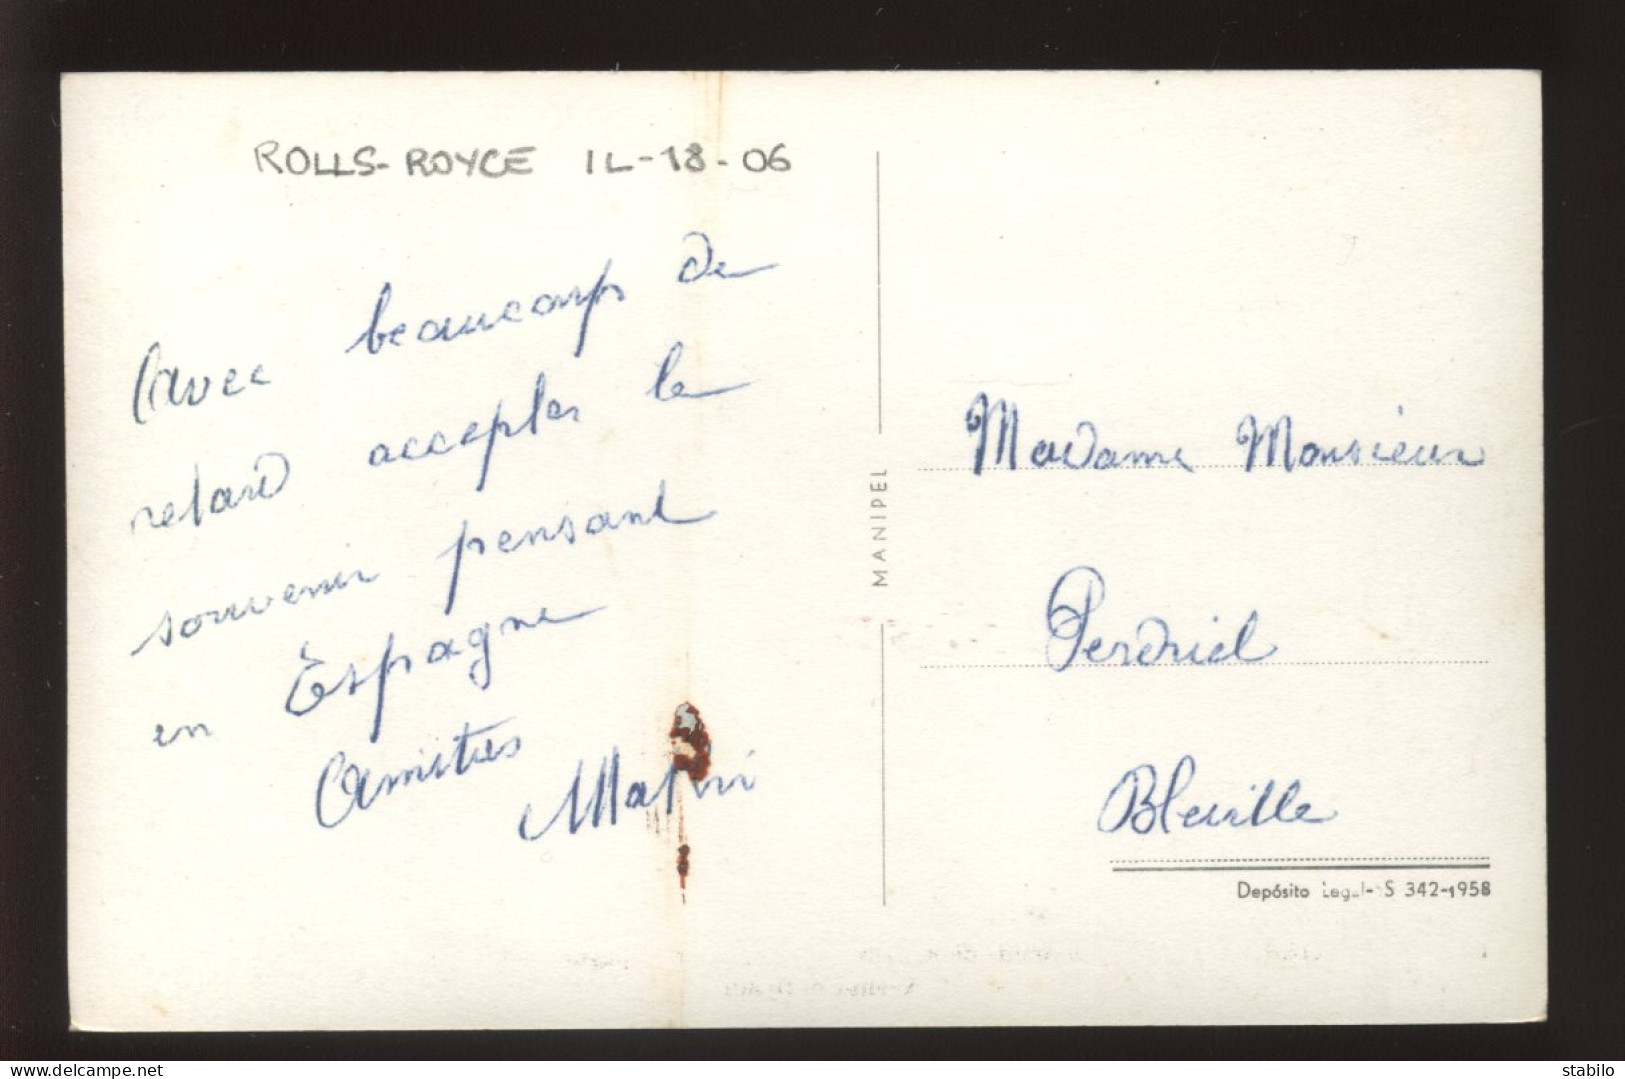 ROLLS-ROYCE IL-18-06
Avec beaucoup de
retard accepter le
souvenir pensant
en Espagne
Amitiés
MANIPEL
Madame Monsieur
Perdriel
Bleville
Depósito Legal-S 342-1958
www.delcampe.net
stabilo